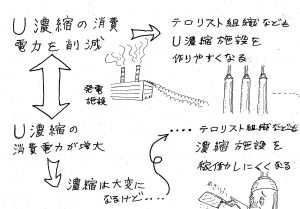 U濃縮の消費
電力を削減
テロリスト組織なども
U濃縮施設を
作りやすくなる
発電
施設
U濃縮の
消費電力が増大
濃縮は大変に
なるけど・・・・
・・・・テロリスト組織なども
濃縮施設を
稼働しにくくなる